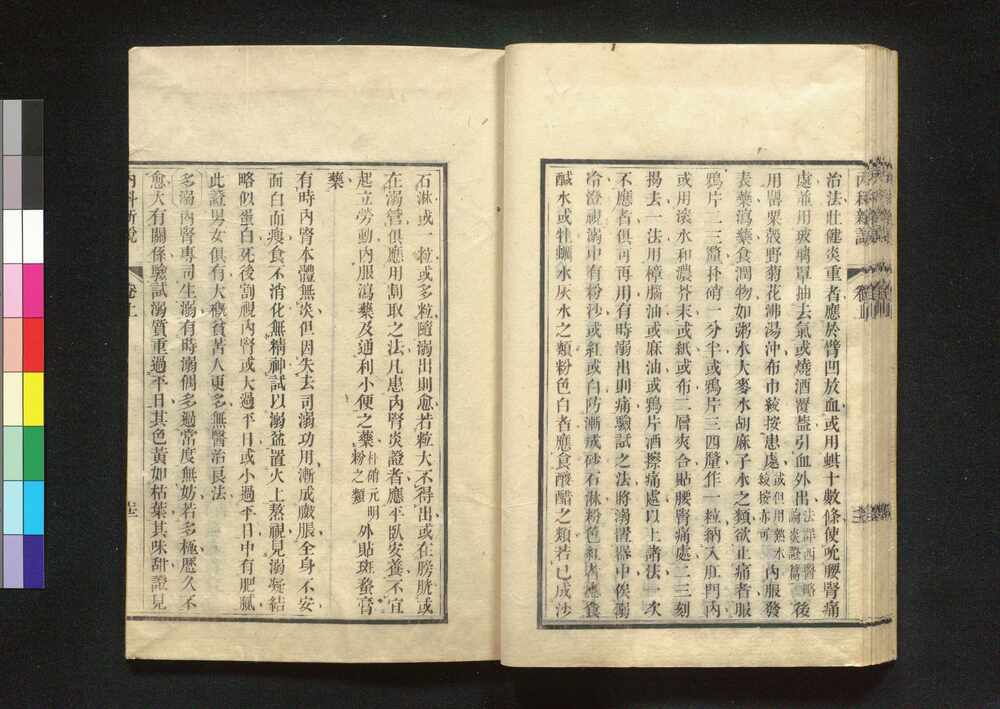 治法壯健炎重者應於臂凹放血或用蜞十數條使吮腰腎痛
處兼用玻璃罩抽去氣或燒酒覆蓋引血外出法詳西醫略論炎證篇後
用罌粟殼野菊花沸湯沖布巾絞按患處或但用熱水絞按亦可內服發
表藥瀉藥食潤物如粥水大麥水胡麻子水之類欲止痛者服
鴉片二三釐朴硝一分半或鴉片三四釐作一粒納入肛門內
或用滾水和濃芥末或紙或布二層夾合貼腰腎痛處二三刻
揭去一法用樟腦油或麻油或鴉片酒擦痛處以上諸法一次
不應者俱可再用有時溺出則痛驗試之法將溺置器中俟溺
冷澄視溺中有粉沙或紅或白防漸成砂石淋粉色紅者應食
鹹水或牡蠣水灰水之類粉色白者應食酸醋之類若已成沙
石淋或一粒或多粒隨溺出則愈若粒大不得出或在膀胱或
在溺管俱應用割取之法凡患內腎炎證者應平臥安養不宜
起立勞動內服瀉藥及通利小便之藥朴硝元明粉之類外貼斑蝥膏
藥
有時內腎本體無炎但因失去司溺功用漸成臌脹全身不安
面白而瘦食不消化無精神試以溺盆置火上熬視見溺凝結
略似蛋白死後割視內腎或大過平日或小過平日中有肥膩
此證男女俱有大槪貧苦人更多無醫治良法
多溺內腎專司生溺有時溺偶多過常度無妨若多極歷久不
愈大有關係驗試溺質重過平日其色黃如枯葉其味甜證見
內科新說
卷上